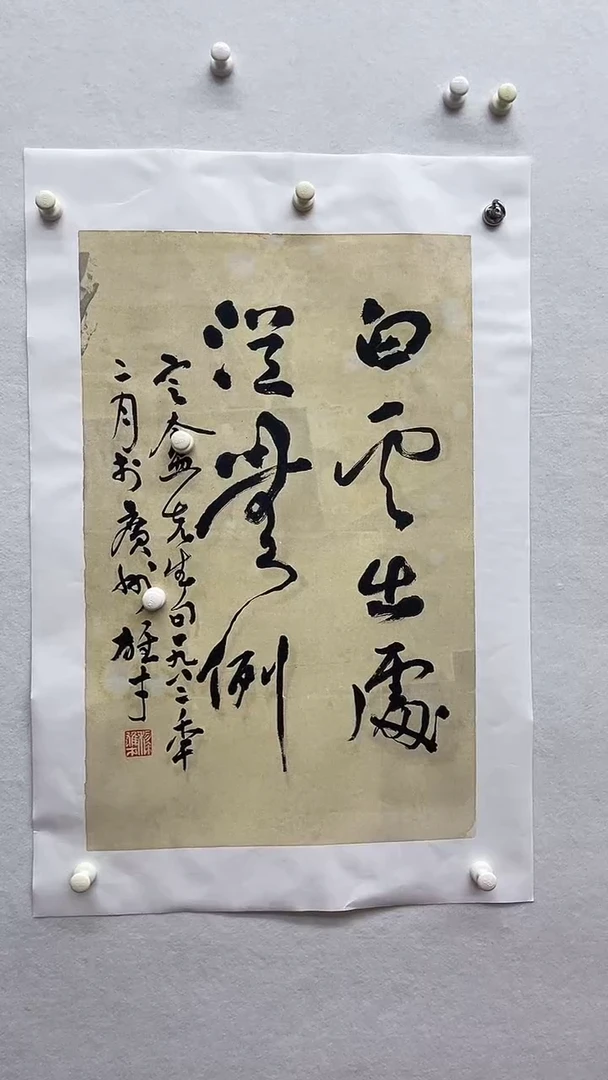 白雲出處
從無例
定盦先生句一九八二年
二月於廣州雄才